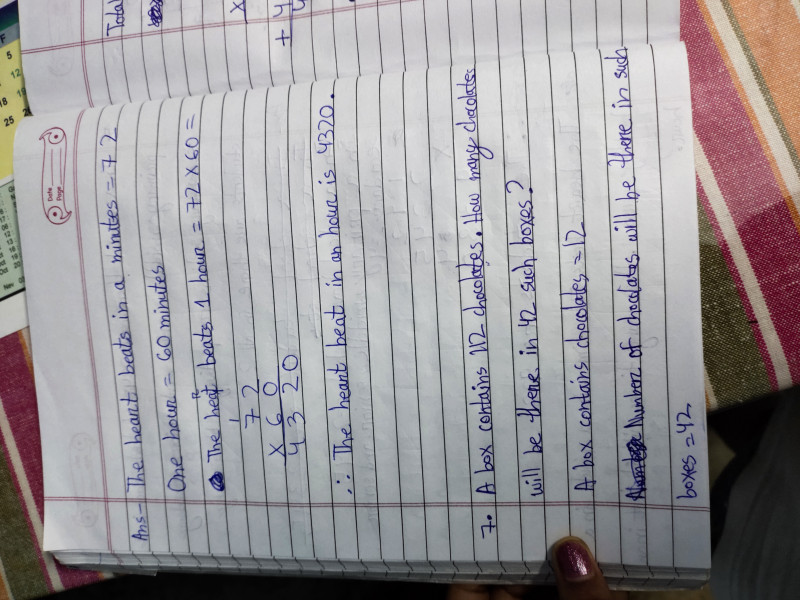 Total
x
+ 4
Date
Page
Ans- The heart beats in a minutes = 72
One hour = 60 minutes
The heart beats 1 hour = 72 x 60 =
1
7 2
x 6 0
4 3 20
∴ The heart beat in an hour is 4320.
7. A box contains 112 chocolates. How many chocolates
will be there in 42 such boxes?
A box contains chocolates = 12
Number of chocolates will be there in such
boxes = 42